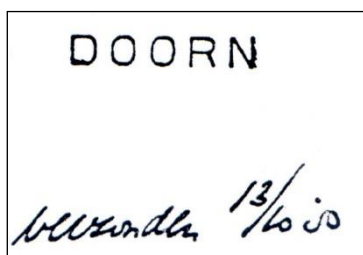 DOORN
verzonden 13/10